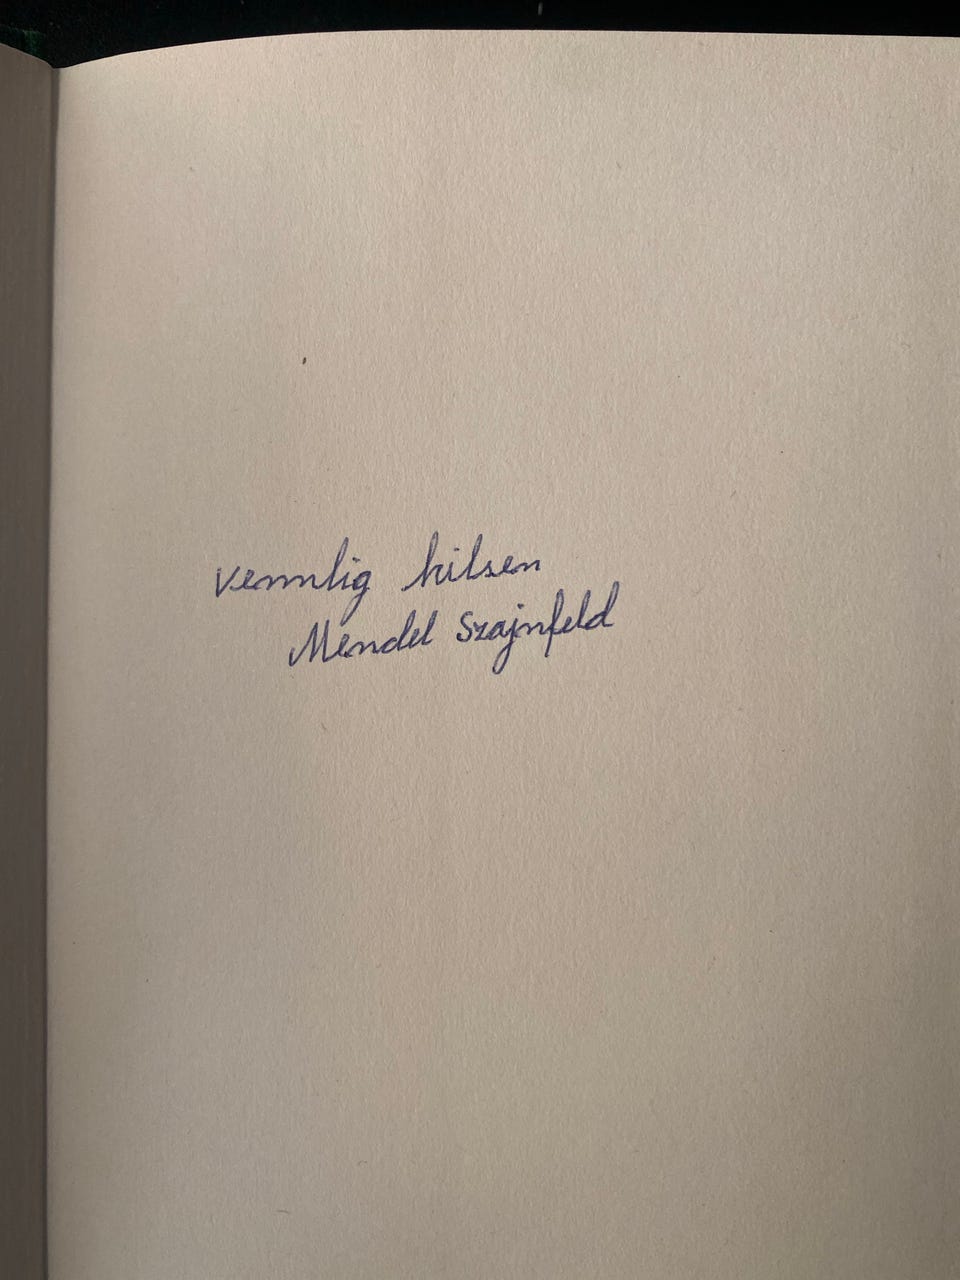 vennlig hilsen
Mendel Szajnfeld